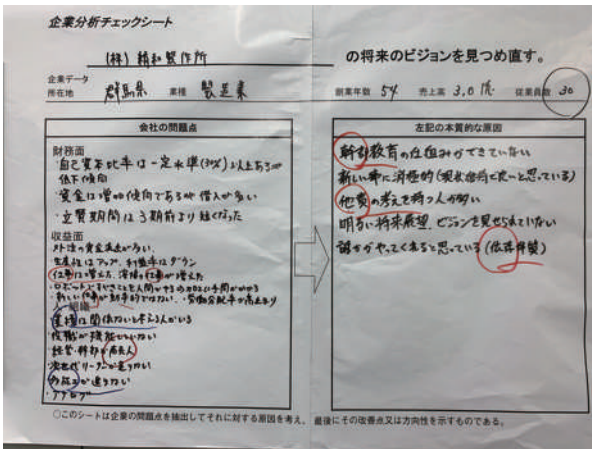 企業分析チェックシート
(株) 精和製作所 の将来のビジョンを見つめ直す。
企業データ
所在地 群馬県 業種 製造業 創業年数 54 売上高 3.0億 従業員数 30
会社の問題点
財務面
・自己資本比率は一定水準(30%)以上あるが
低下傾向
・資金は増加傾向であるが借入が多い
・立替期間は3期前より短くなった
収益面
・外注の資金流出が多い。
・生産性はアップ、利益率はダウン
・仕事は増えた、溶接の仕事が増えた
・ロボットで
・新しい仕事が効率的ではない ・労働分配率が高止まり
組織
・業績は関係ないと考える人がいる
・役職が機能していない
・経営・幹部が
・次世代リーダーが育たない
・アナログ
左記の本質的な原因
幹部教育の仕組みができていない
新しい事に消極的(現状維持で良いと思っている)
他責の考えを持つ人が多い
明るい将来展望、ビジョンを見せられていない
誰かがやってくれると思っている(依存体質)
○このシートは企業の問題点を抽出してそれに対する原因を考え、最後にその改善点又は方向性を示すものである。